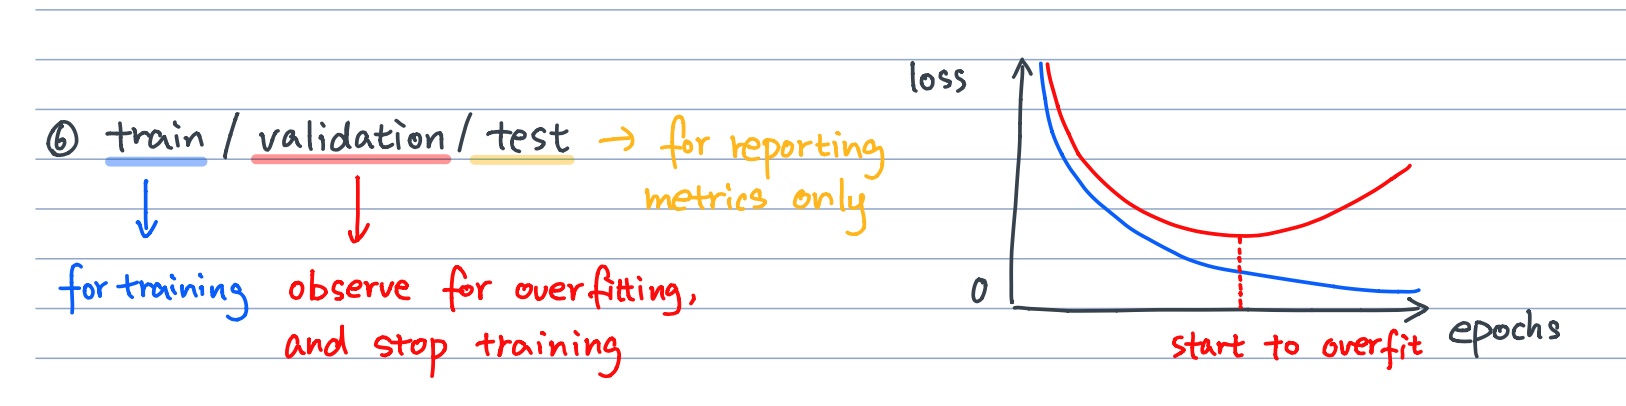 ⑥ train / validation / test → for reporting
metrics only
for training
observe for overfitting,
and stop training
loss
0
epochs
start to overfit